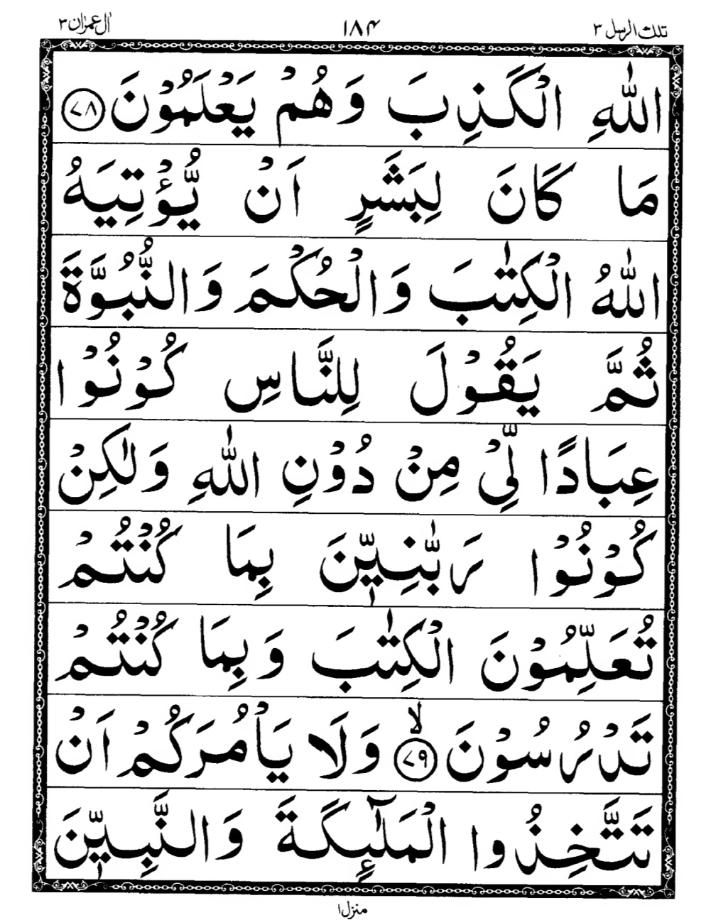 تلك الرسل ٣ ۱۸۴ اٰل عمرٰن ٣
اللّٰهِ الْكَذِبَ وَهُمْ يَعْلَمُوْنَ ﴿۷۸﴾
مَا كَانَ لِبَشَرٍ اَنْ يُّؤْتِيَهُ
اللّٰهُ الْكِتٰبَ وَالْحُكْمَ وَالنُّبُوَّةَ
ثُمَّ يَقُوْلَ لِلنَّاسِ كُوْنُوْا
عِبَادًا لِّىْ مِنْ دُوْنِ اللّٰهِ وَلٰكِنْ
كُوْنُوْا رَبّٰنِيّٖنَ بِمَا كُنْتُمْ
تُعَلِّمُوْنَ الْكِتٰبَ وَبِمَا كُنْتُمْ
تَدْرُسُوْنَ ﴿۷۹﴾ۙ وَلَا يَاْمُرَكُمْ اَنْ
تَتَّخِذُوا الْمَلٰٓئِكَةَ وَالنَّبِيّٖنَ
منزل ۱